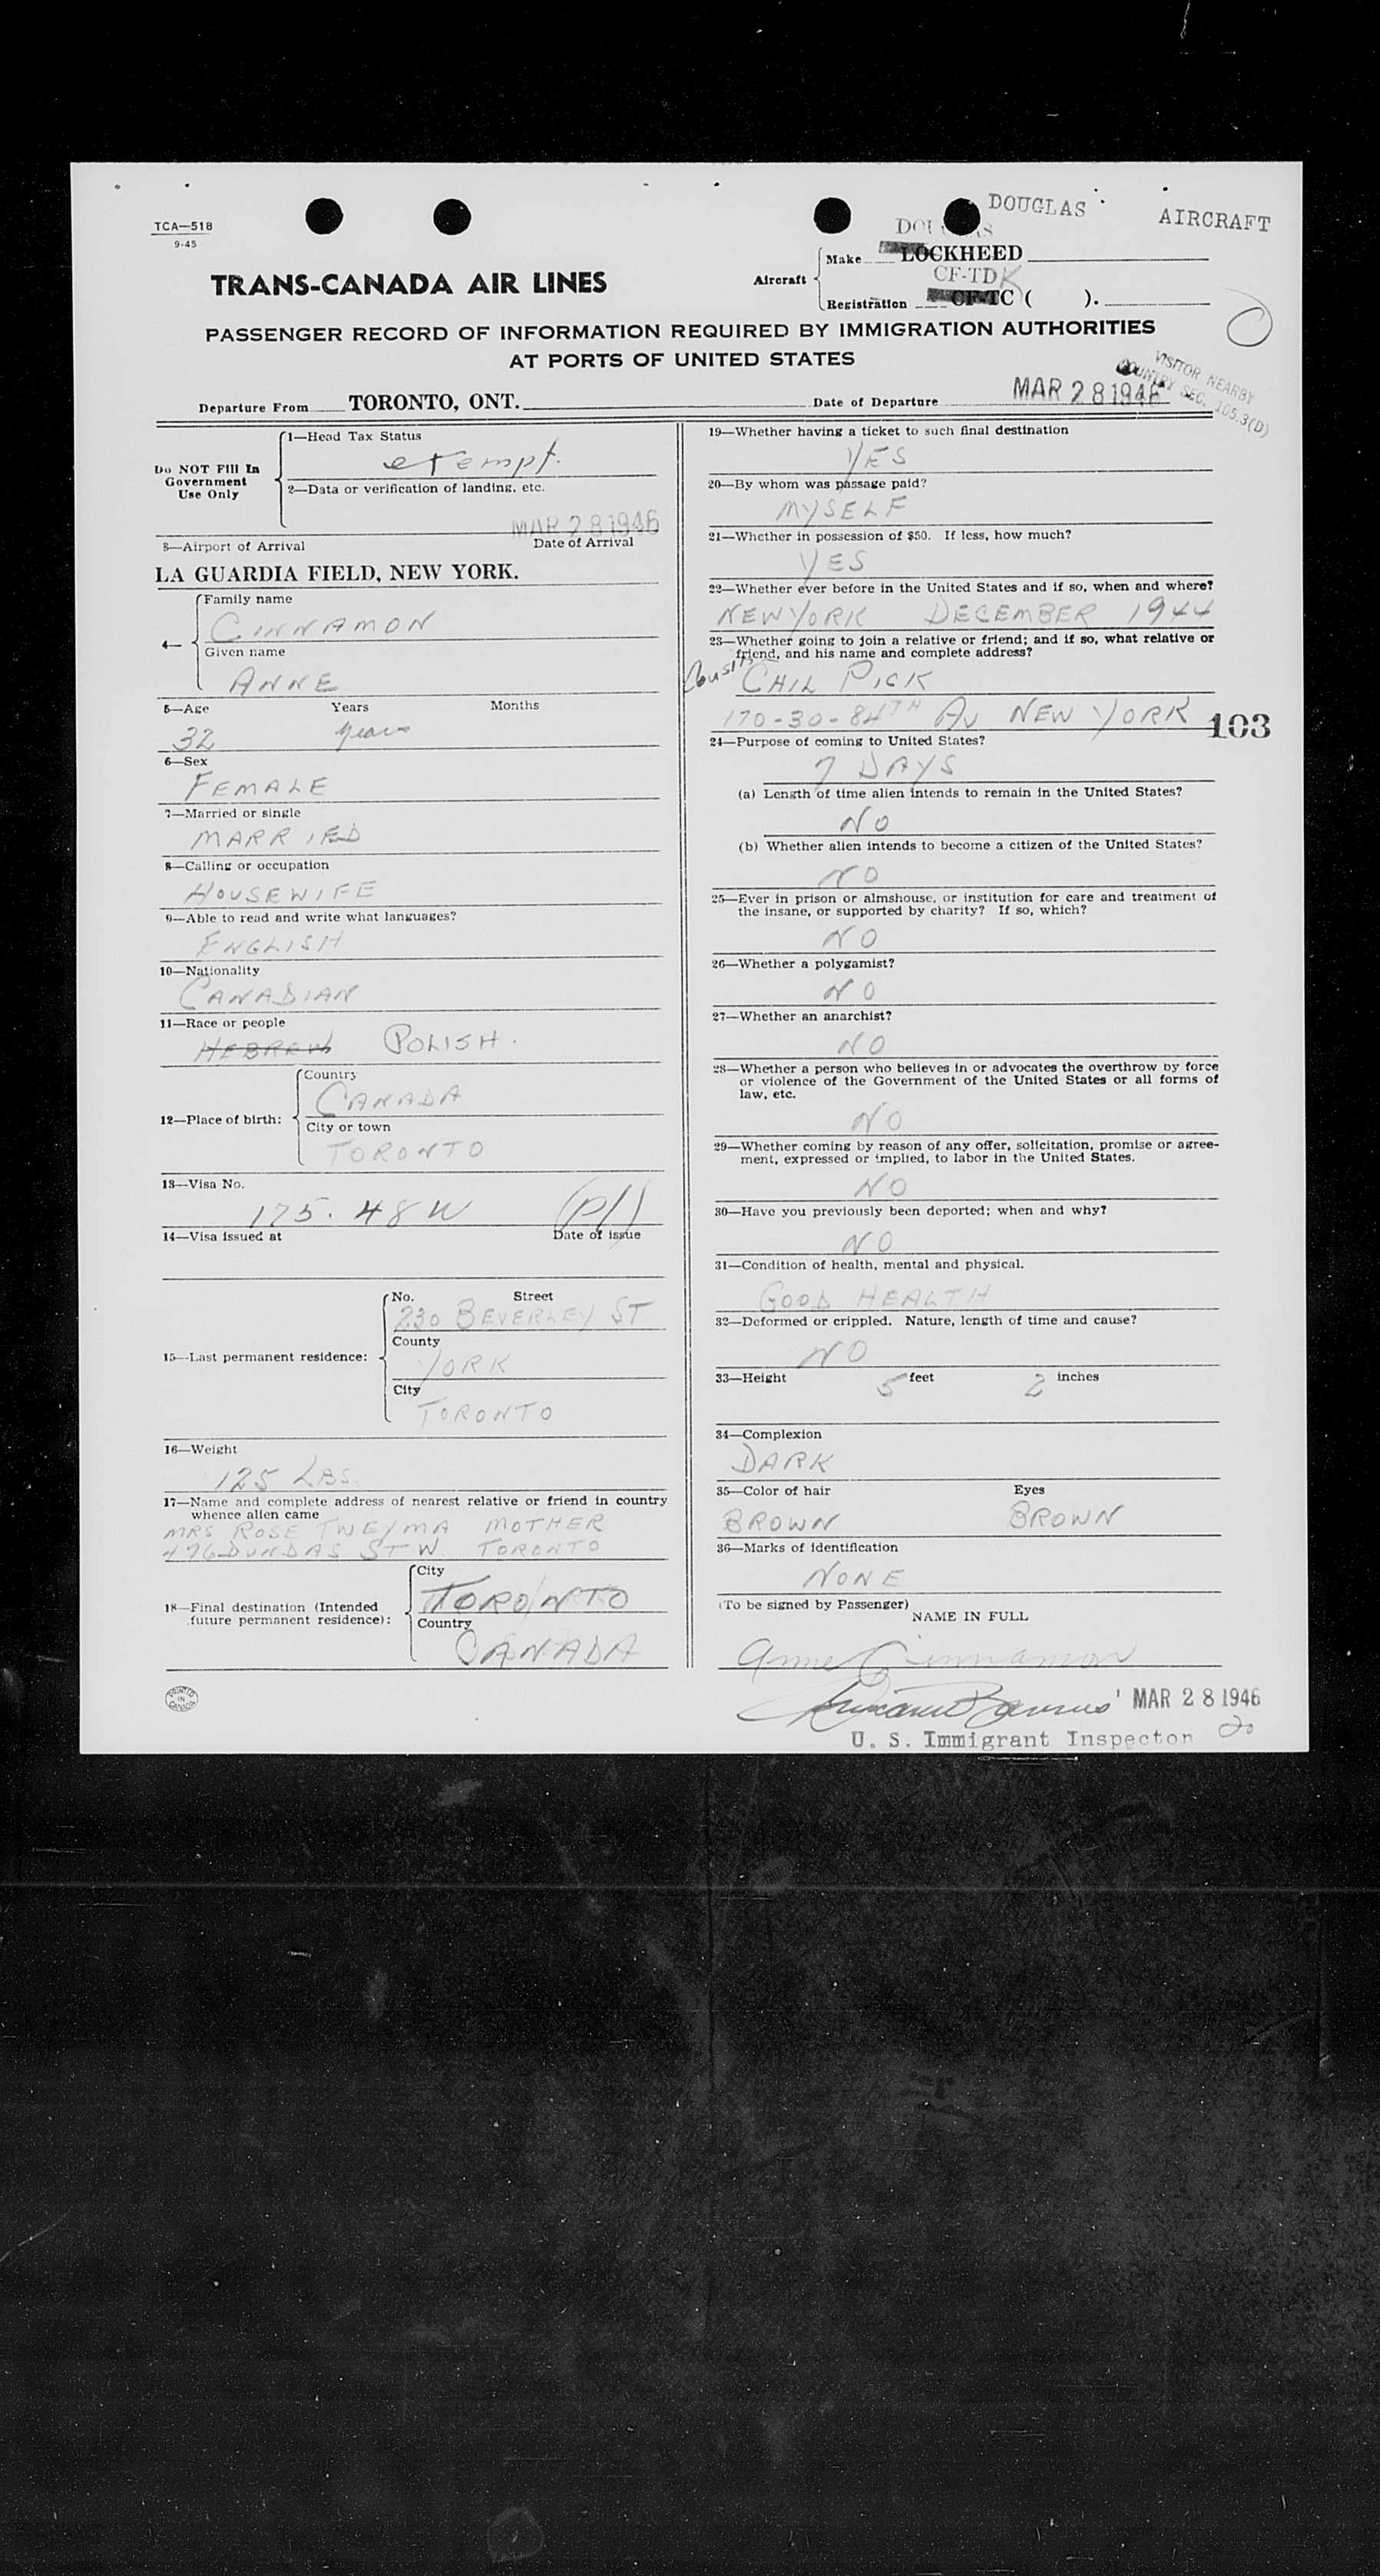 DOUGLAS AIRCRAFT
TCA—518
9-45
Make LOCKHEED
TRANS-CANADA AIR LINES
Aircraft
CF-TDK
Registration CF-TC ( ).
PASSENGER RECORD OF INFORMATION REQUIRED BY IMMIGRATION AUTHORITIES
AT PORTS OF UNITED STATES
VISITOR NEARBY
COUNTRY SEC. 165.3(D)
Departure From TORONTO, ONT. Date of Departure MAR 28 1946
Do NOT Fill In
Government
Use Only
1—Head Tax Status
exempt.
2—Data or verification of landing, etc.
MAR 28 1946
3—Airport of Arrival Date of Arrival
LA GUARDIA FIELD, NEW YORK.
4—
Family name
CINNAMON
Given name
ANNE
5—Age Years Months
32 years
6—Sex
FEMALE
7—Married or single
MARRIED
8—Calling or occupation
HOUSEWIFE
9—Able to read and write what languages?
ENGLISH
10—Nationality
CANADIAN
11—Race or people
HEBREW POLISH.
12—Place of birth:
Country
CANADA
City or town
TORONTO
13—Visa No.
175. 48 W (P/1)
14—Visa issued at Date of issue
15—Last permanent residence:
No. Street
230 BEVERLEY ST
County
YORK
City
TORONTO
16—Weight
125 LBS.
17—Name and complete address of nearest relative or friend in country
whence alien came
MRS ROSE TWEYMA MOTHER
476 DUNDAS ST W. TORONTO
18—Final destination (Intended
future permanent residence):
City
TORONTO
Country
CANADA
PRINTED
IN
CANADA
19—Whether having a ticket to such final destination
YES
20—By whom was passage paid?
MYSELF
21—Whether in possession of $50. If less, how much?
YES
22—Whether ever before in the United States and if so, when and where?
NEW YORK DECEMBER 1944
23—Whether going to join a relative or friend; and if so, what relative or
friend, and his name and complete address?
Cousin CHIL PICK
170-30-84TH AV NEW YORK 103
24—Purpose of coming to United States?
7 DAYS
(a) Length of time alien intends to remain in the United States?
NO
(b) Whether alien intends to become a citizen of the United States?
NO
25—Ever in prison or almshouse, or institution for care and treatment of
the insane, or supported by charity? If so, which?
NO
26—Whether a polygamist?
NO
27—Whether an anarchist?
NO
28—Whether a person who believes in or advocates the overthrow by force
or violence of the Government of the United States or all forms of
law, etc.
NO
29—Whether coming by reason of any offer, solicitation, promise or agree-
ment, expressed or implied, to labor in the United States.
NO
30—Have you previously been deported; when and why?
NO
31—Condition of health, mental and physical.
GOOD HEALTH
32—Deformed or crippled. Nature, length of time and cause?
NO
33—Height 5 feet 2 inches
34—Complexion
DARK
35—Color of hair Eyes
BROWN BROWN
36—Marks of identification
NONE
(To be signed by Passenger)
NAME IN FULL
Anne Cinnamon
MAR 28 1946
U. S. Immigrant Inspector 20